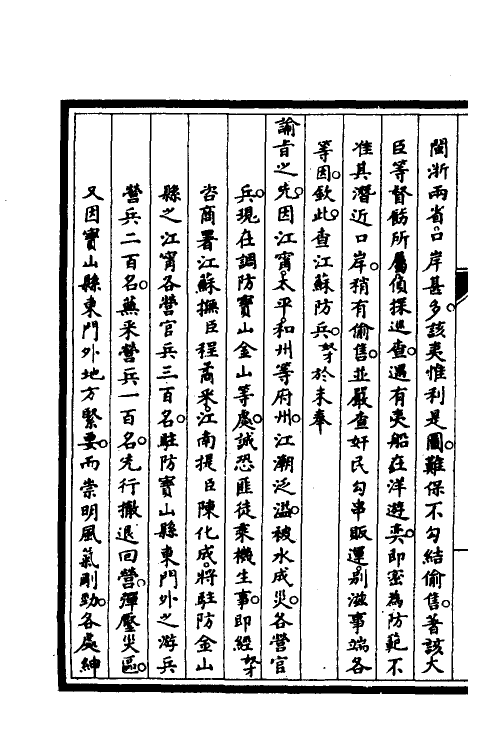 閩浙兩省口岸甚多。該夷惟利是圖。難保不勾結偷售。著該大
臣等督飭所屬偵探巡查。遇有夷船在洋遊奕。即密為防範。不
准其潛近口岸。稍有偷售。並嚴查奸民勾串販運。別滋事端各
等因。欽此。查江蘇防兵。奴才於未奉
諭旨之先。因江甯。太平。和州等府州。江潮泛溢。被水成災。各營官
兵。現在調防寶山金山等處。誠恐匪徒乘機生事。即經奴才
咨商署江蘇撫臣程矞采。江南提臣陳化成。將駐防金山
縣之江甯各營官兵三百名。駐防寶山縣東門外之游兵
營兵二百名。蕪采營兵一百名。先行撤退回營。彈壓災區。
又因寶山縣東門外地方緊要。而崇明風氣剛勁。各處紳